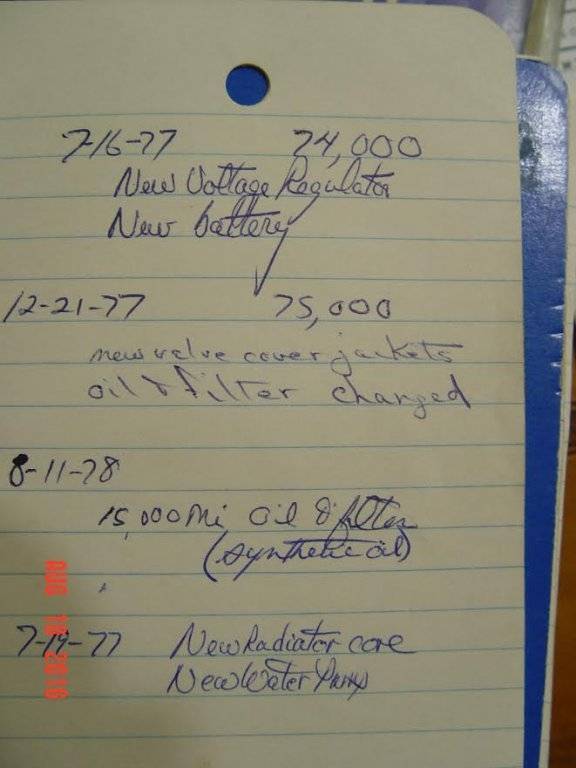 7-16-77 74,000
New Voltage Regulator
New battery
12-21-77 75,000
new valve cover jackets
oil & filter changed
8-11-78
15,000 Mi Oil & filter
(synthetic oil)
7-19-77 New Radiator core
New Water Pump
AUG 18 2016